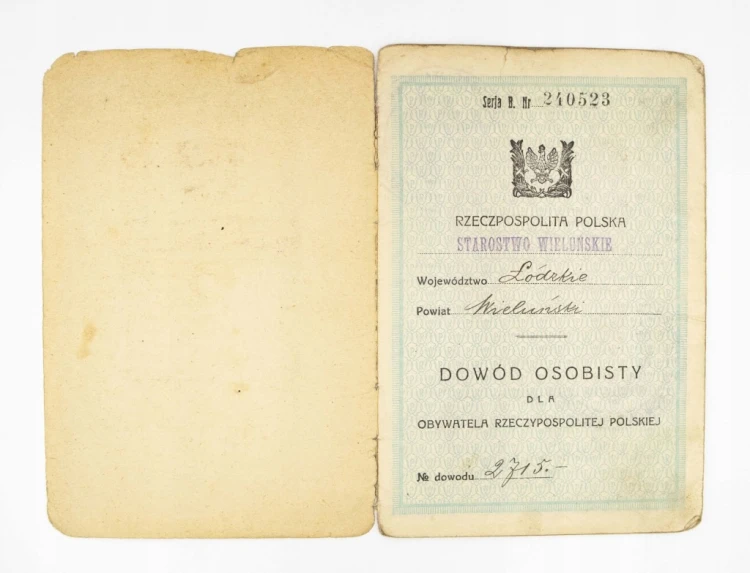 Serja B. Nr 240523
RZECZPOSPOLITA POLSKA
STAROSTWO WIELUŃSKIE
Województwo Łódzkie
Powiat Wieluński
DOWÓD OSOBISTY
DLA
OBYWATELA RZECZYPOSPOLITEJ POLSKIEJ
№ dowodu 2715.-